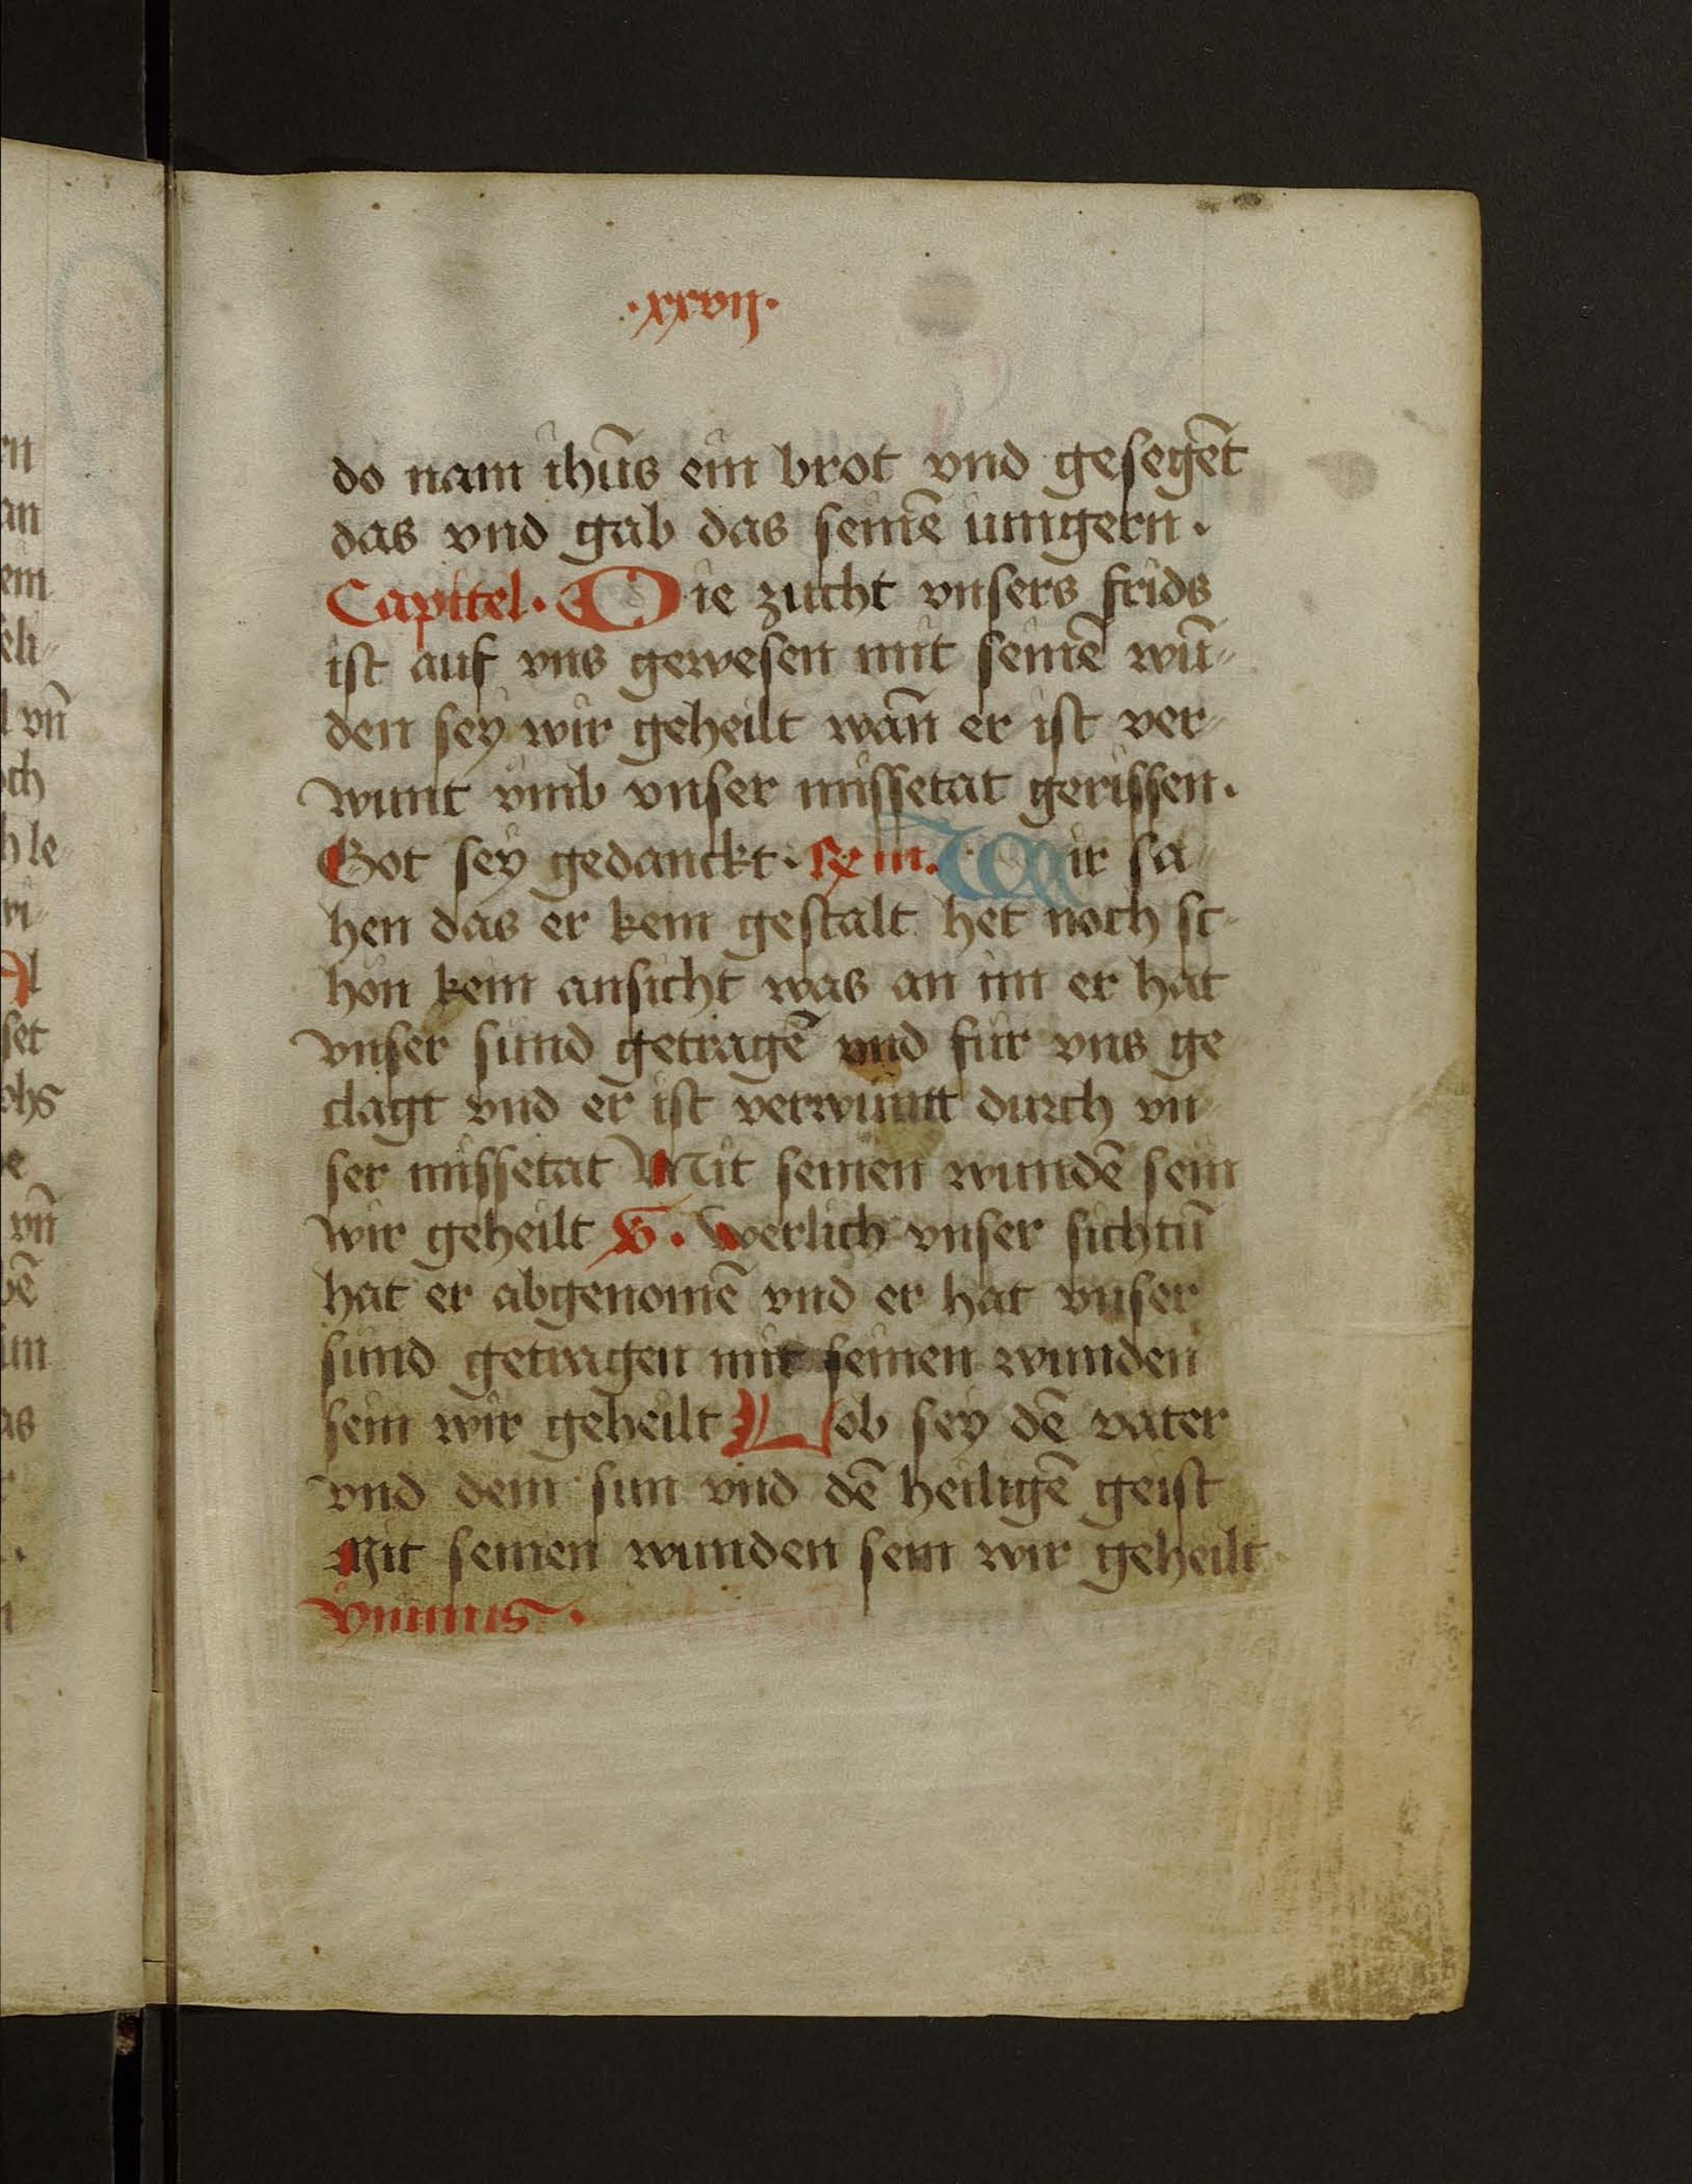 ·xxvij·
do nam ihūs ein brot vnd gesegēt
das vnd gab das seinē iungern.
Capittel. Die zucht vnsers frids
ist auf vns gewesen mit seinē wū-
den sey wir geheilt wañ er ist ver-
wunt vmb vnser missetat gerissen.
Got sey gedanckt. Wir sa-
hen das er kein gestalt het noch sc-
hon kein ansicht was an im er hat
vnser sund getragē vnd fur vns ge-
clagt vnd er ist verwuntt durch vn-
ser missetat Mit seinen wundē sein
wir geheilt V. Werlich vnser sichtū
hat er abgenomē vnd er hat vnser
sund getragen mit seinen wunden
sein wir geheilt Lob sey dē vater
vnd dem sun vnd dē heiligē geist
Mit seinen wunden sein wir geheilt
ymnus.